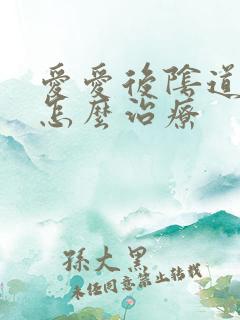 愛愛後陰道
怎麼治療
孫大黑
未经同意禁止转载